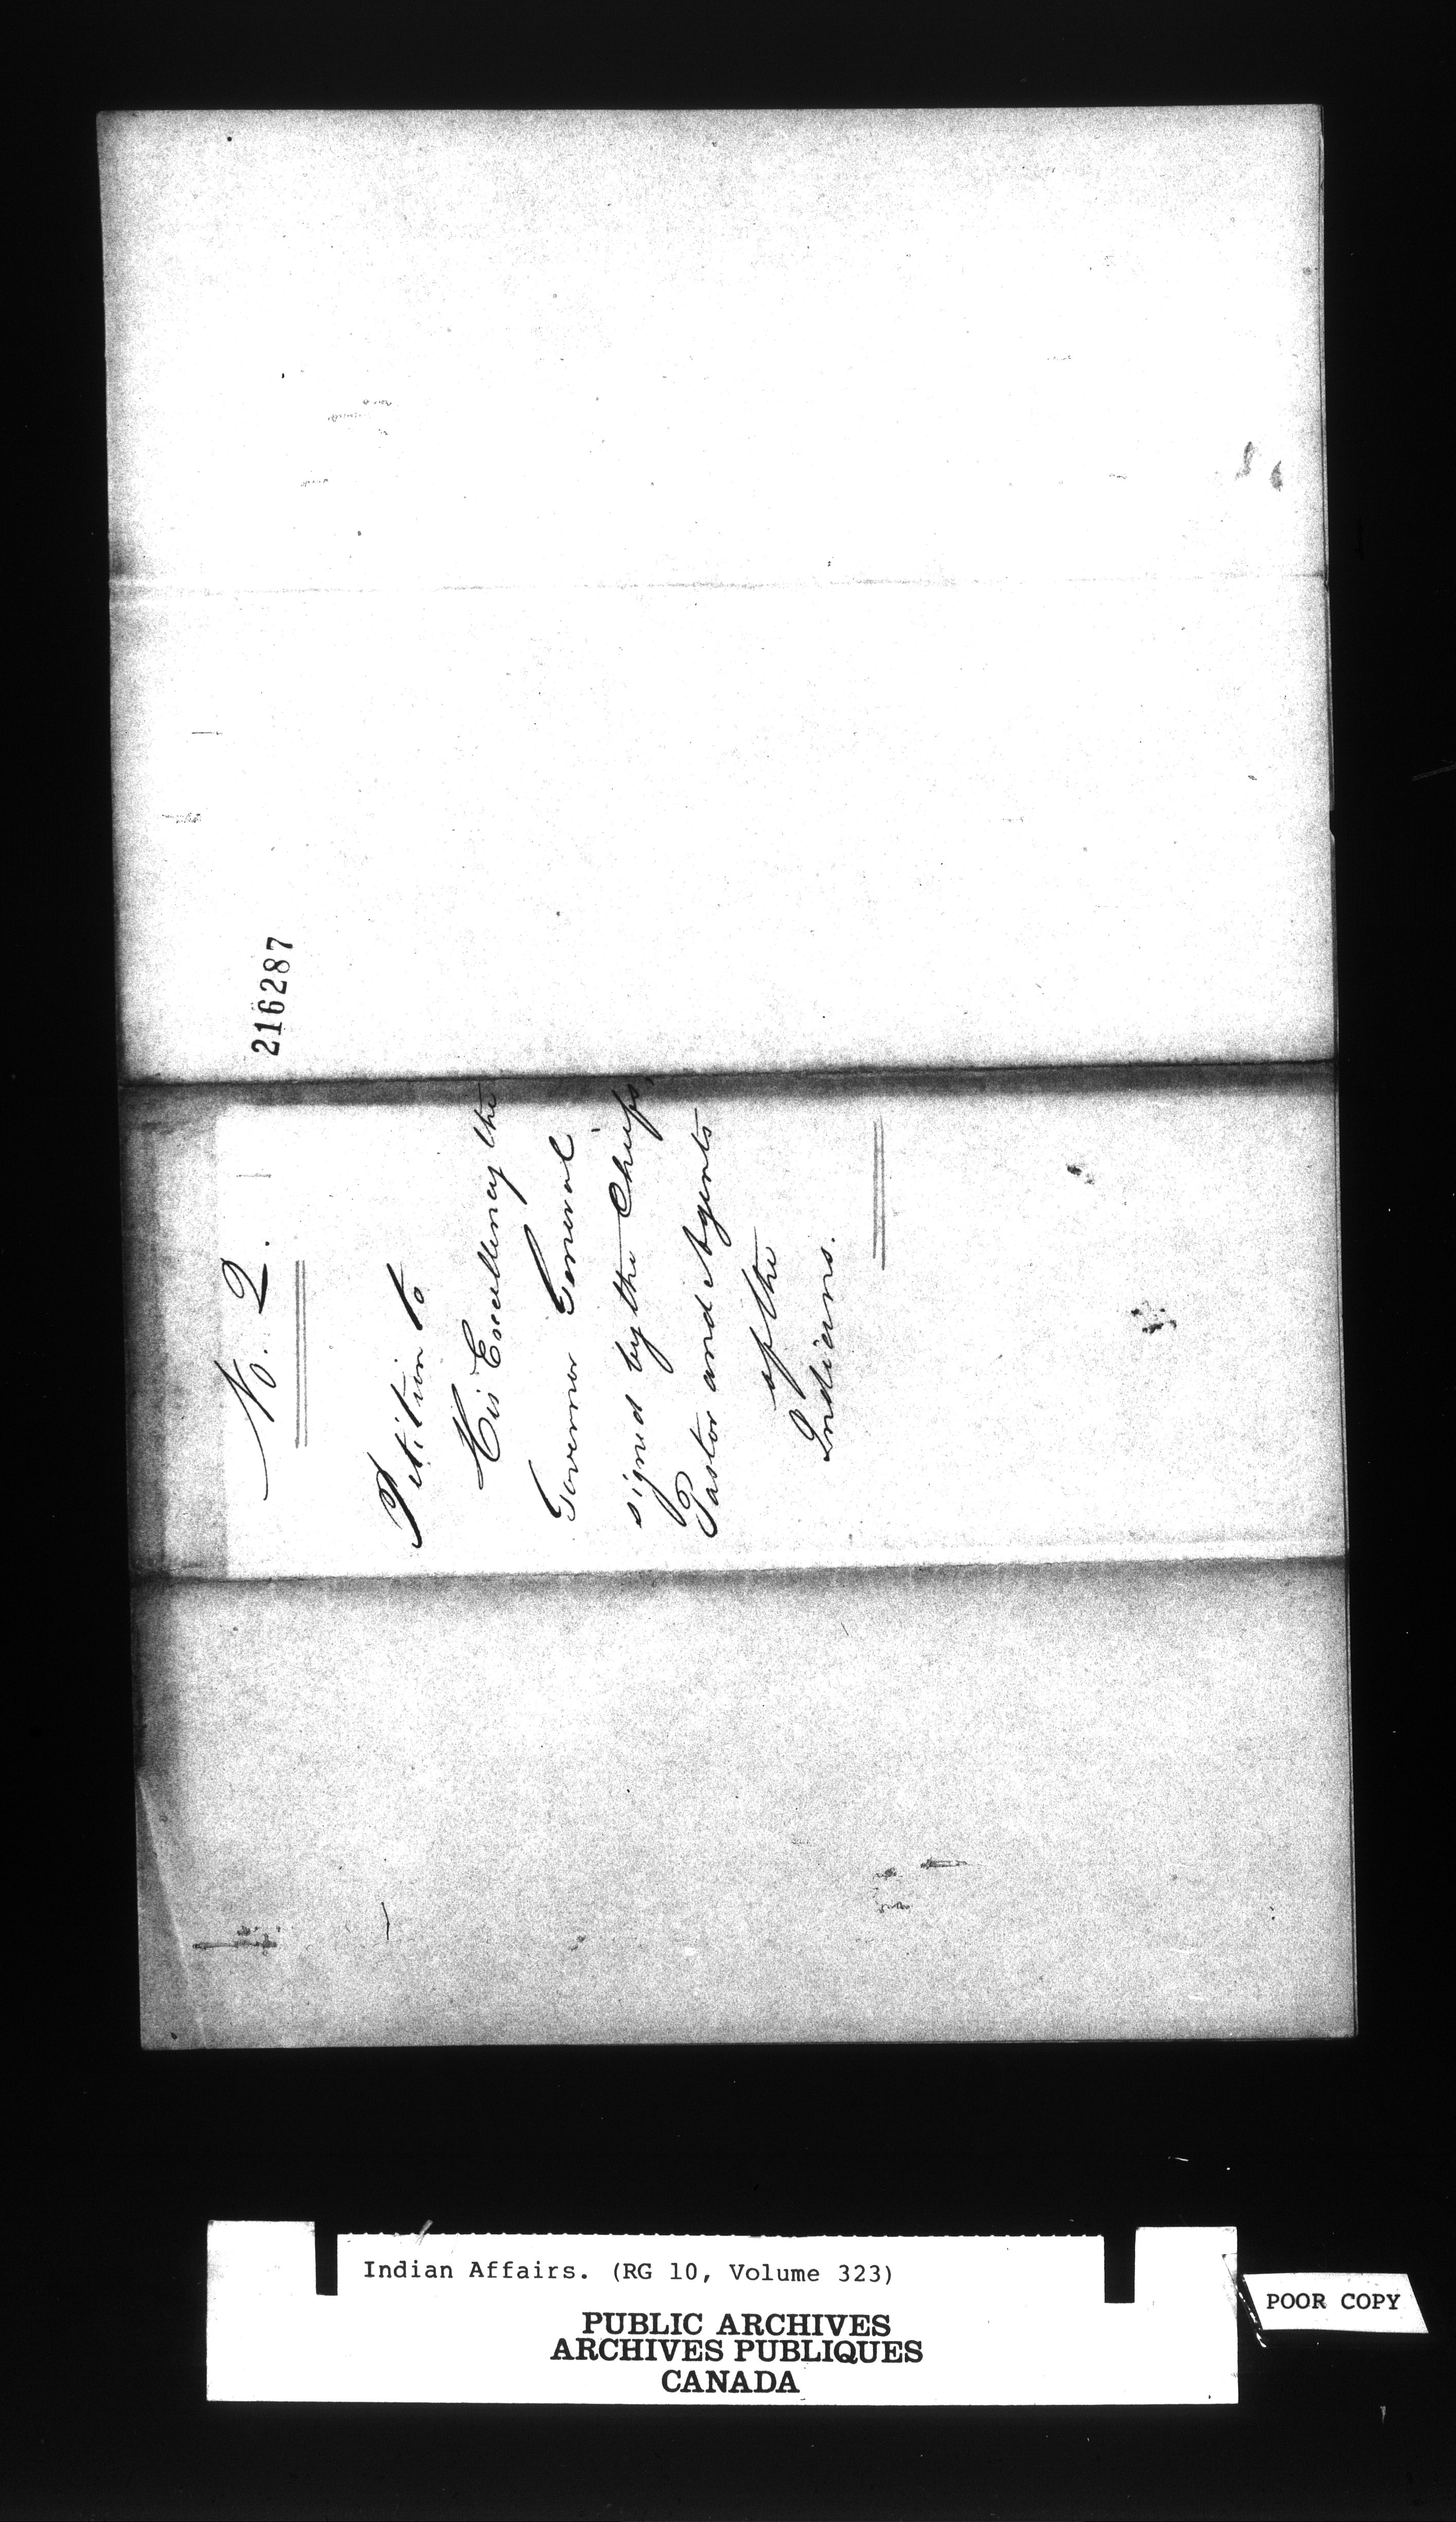 216287
No. 2.
Petition to
His Excellency the
Governor General
signed by the Chiefs,
Pastor and Agents
of the
Indians.
Indian Affairs. (RG 10, Volume 323)
PUBLIC ARCHIVES
ARCHIVES PUBLIQUES
CANADA
POOR COPY